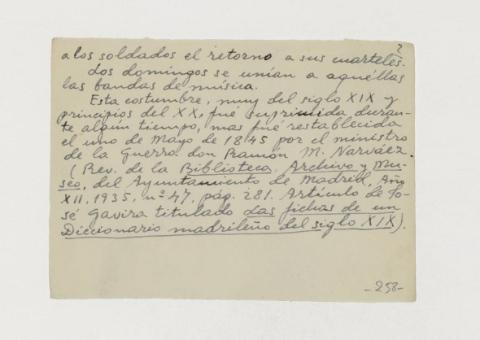 2
a los soldados el retorno a sus cuarteles.
Los domingos se unían a aquéllas
las bandas de música.
Esta costumbre, muy del siglo XIX y
principios del XX, fué suprimida duran-
te algún tiempo, mas fué restablecida
el uno de Mayo de 1845 por el ministro
de la guerra don Ramón M. Narváez.
(Rev. de la Biblioteca, Archivo y Mu-
seo, del Ayuntamiento de Madrid, Año
XII, 1935, nº 47, pág. 281. Artículo de Jo-
sé Gavira titulado Las fichas de un
Diccionario madrileño del siglo XIX).
-258-